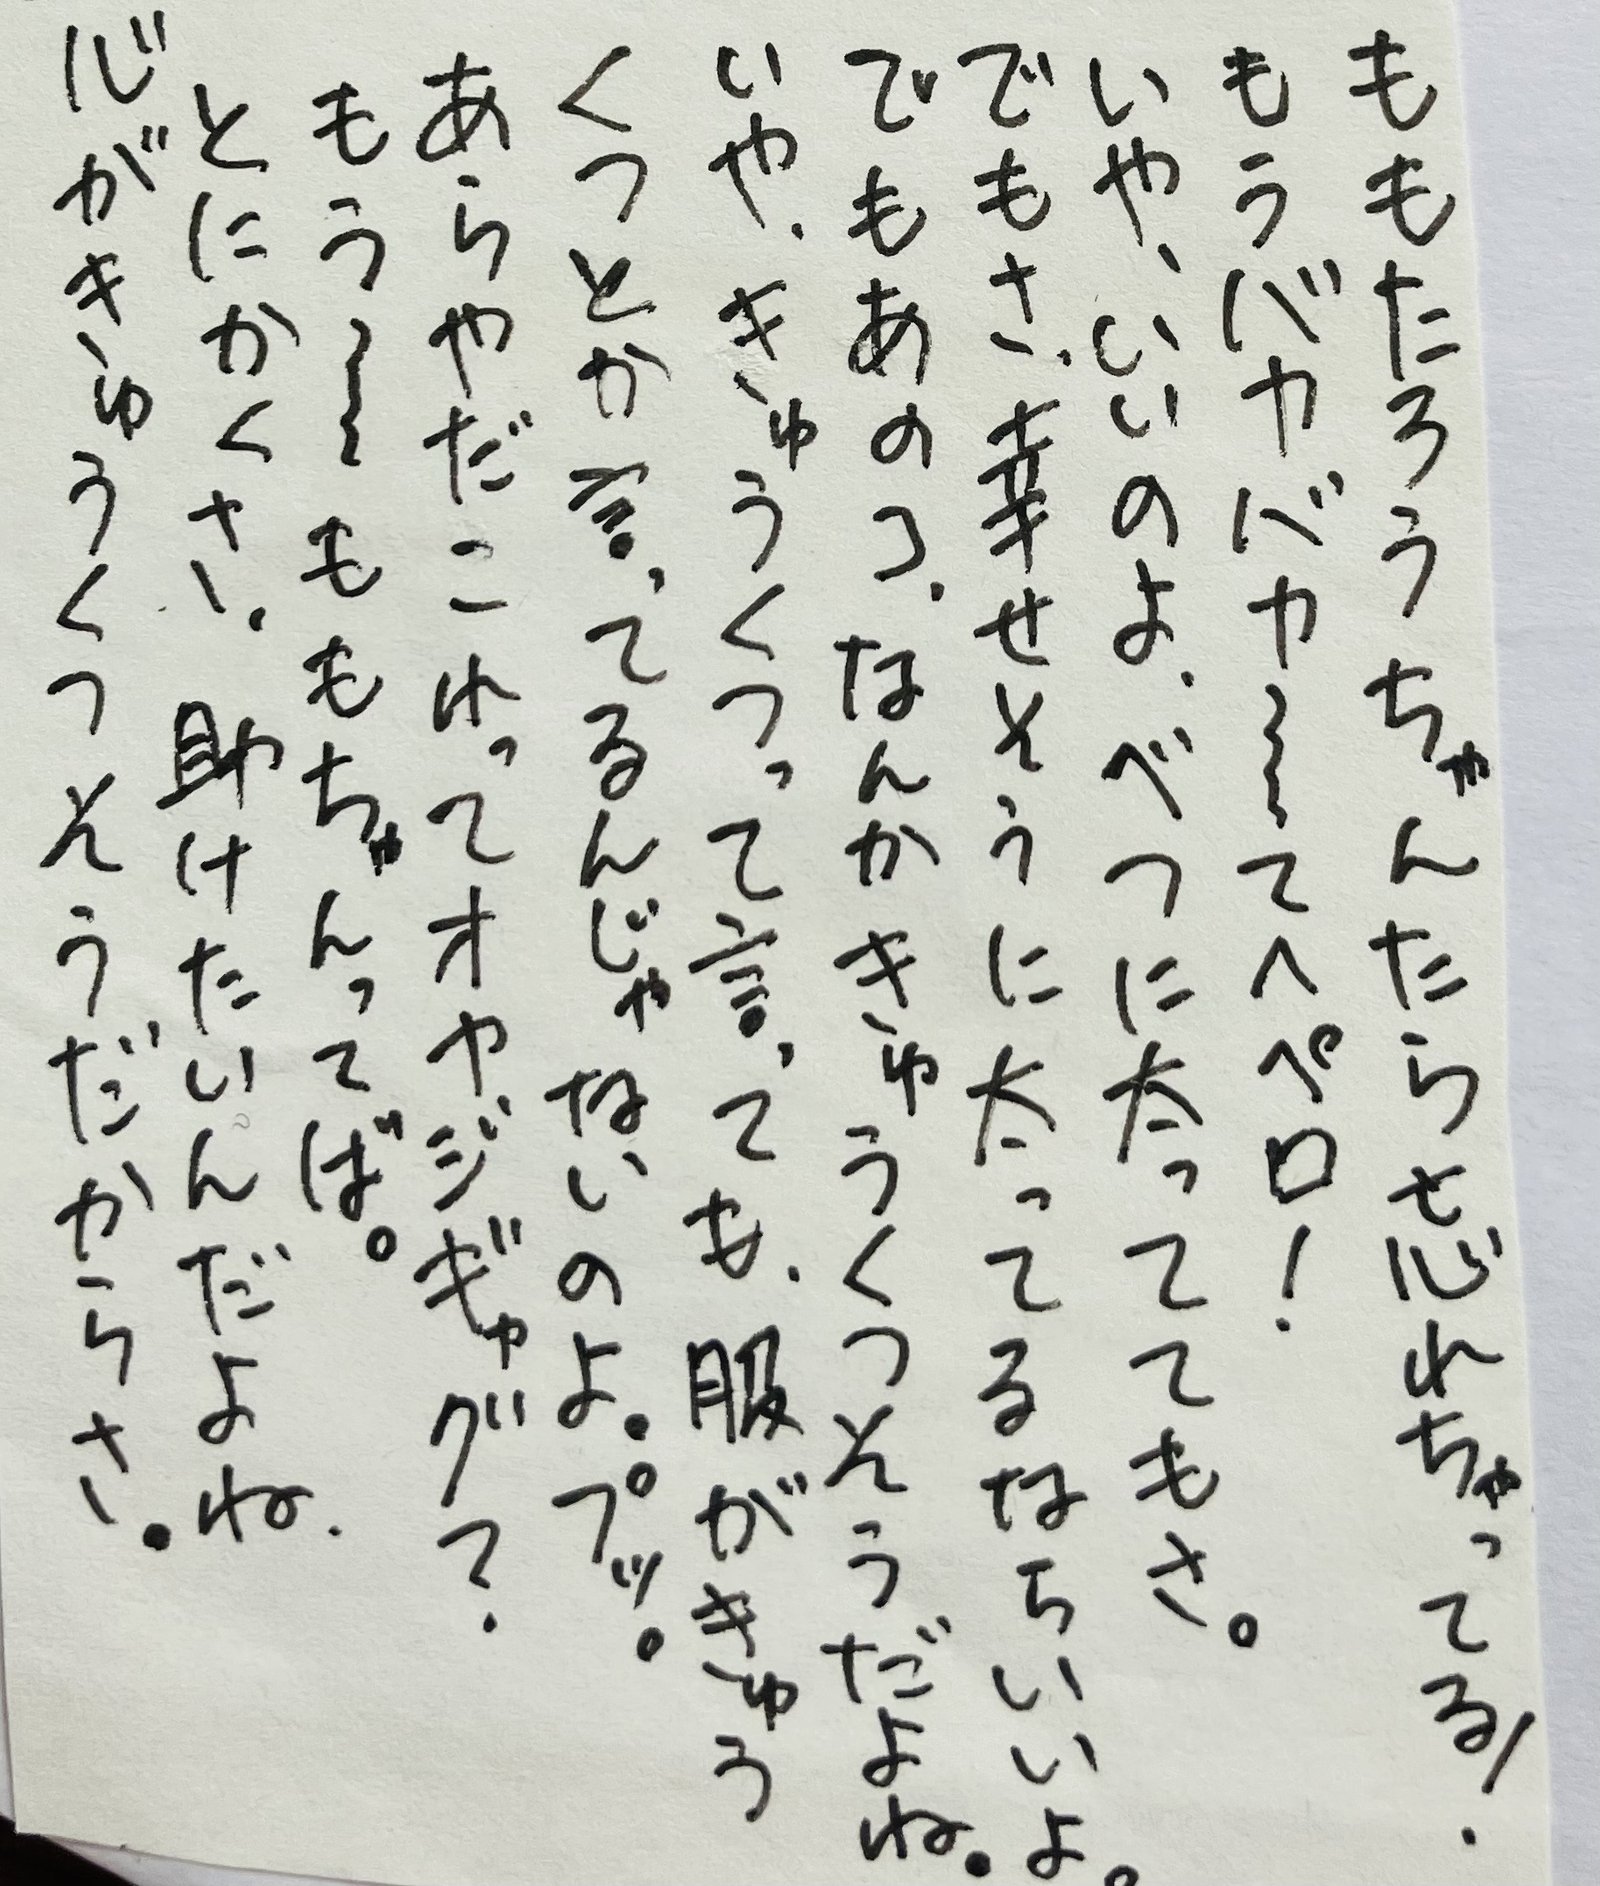 ももたろうちゃんたら忘れちゃってる！
もうバカバカ〜〜てへペロ！
いや、いいのよ、べつに太っててもさ。
でもさ、幸せそうに太ってるならいいよ。
でもあのコ、なんかきゅうくつそうだよね。
いや、きゅうくつって言っても、服がきゅう
くつとか言ってるんじゃないのよ。プッ。
あらやだこれってオヤジギャグ？
もう〜〜ももちゃんってば。
とにかくさ、助けたいんだよね、
心がきゅうくつそうだからさ。